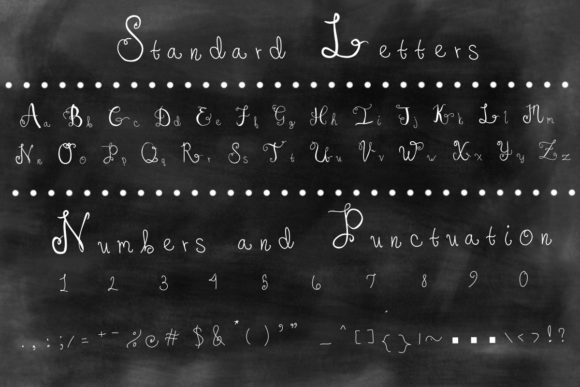 Standard Letters
Aa Bb Cc Dd Ee Ff Gg Hh Ii Jj Kk Ll Mm
Nn Oo Pp Qq Rr Ss Tt Uu Vv Ww Xx Yy Zz
Numbers and Punctuation
1 2 3 4 5 6 7 8 9 0
. , : ; / = + - % @ # $ & * ( ) ' " _ ^ [ ] { } | ~ ■ ■ ■ \ < > ! ?